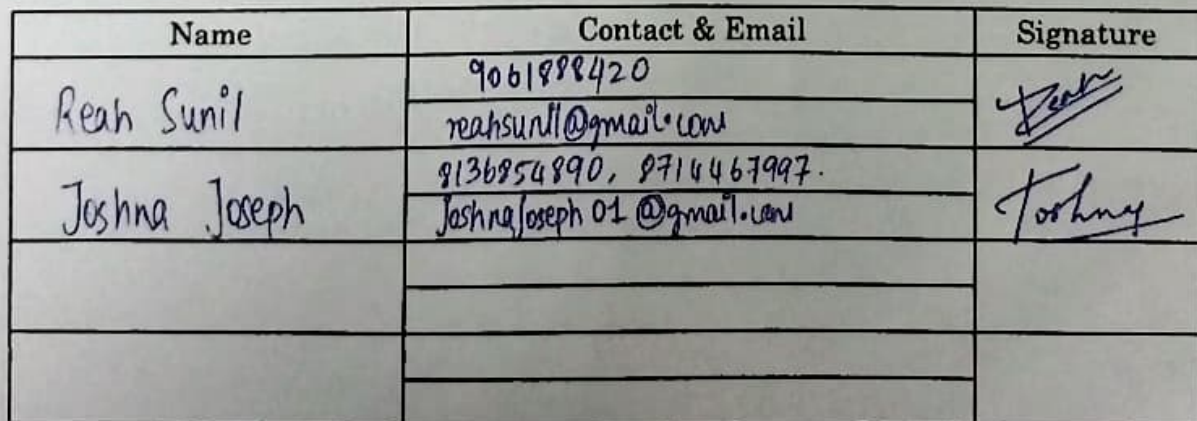 Name Contact & Email Signature
Reah Sunil
9061888420
reahsunil@gmail.com
Reah
Joshna Joseph
8136854890, 8714467997.
Joshnajoseph01@gmail.com
Joshna